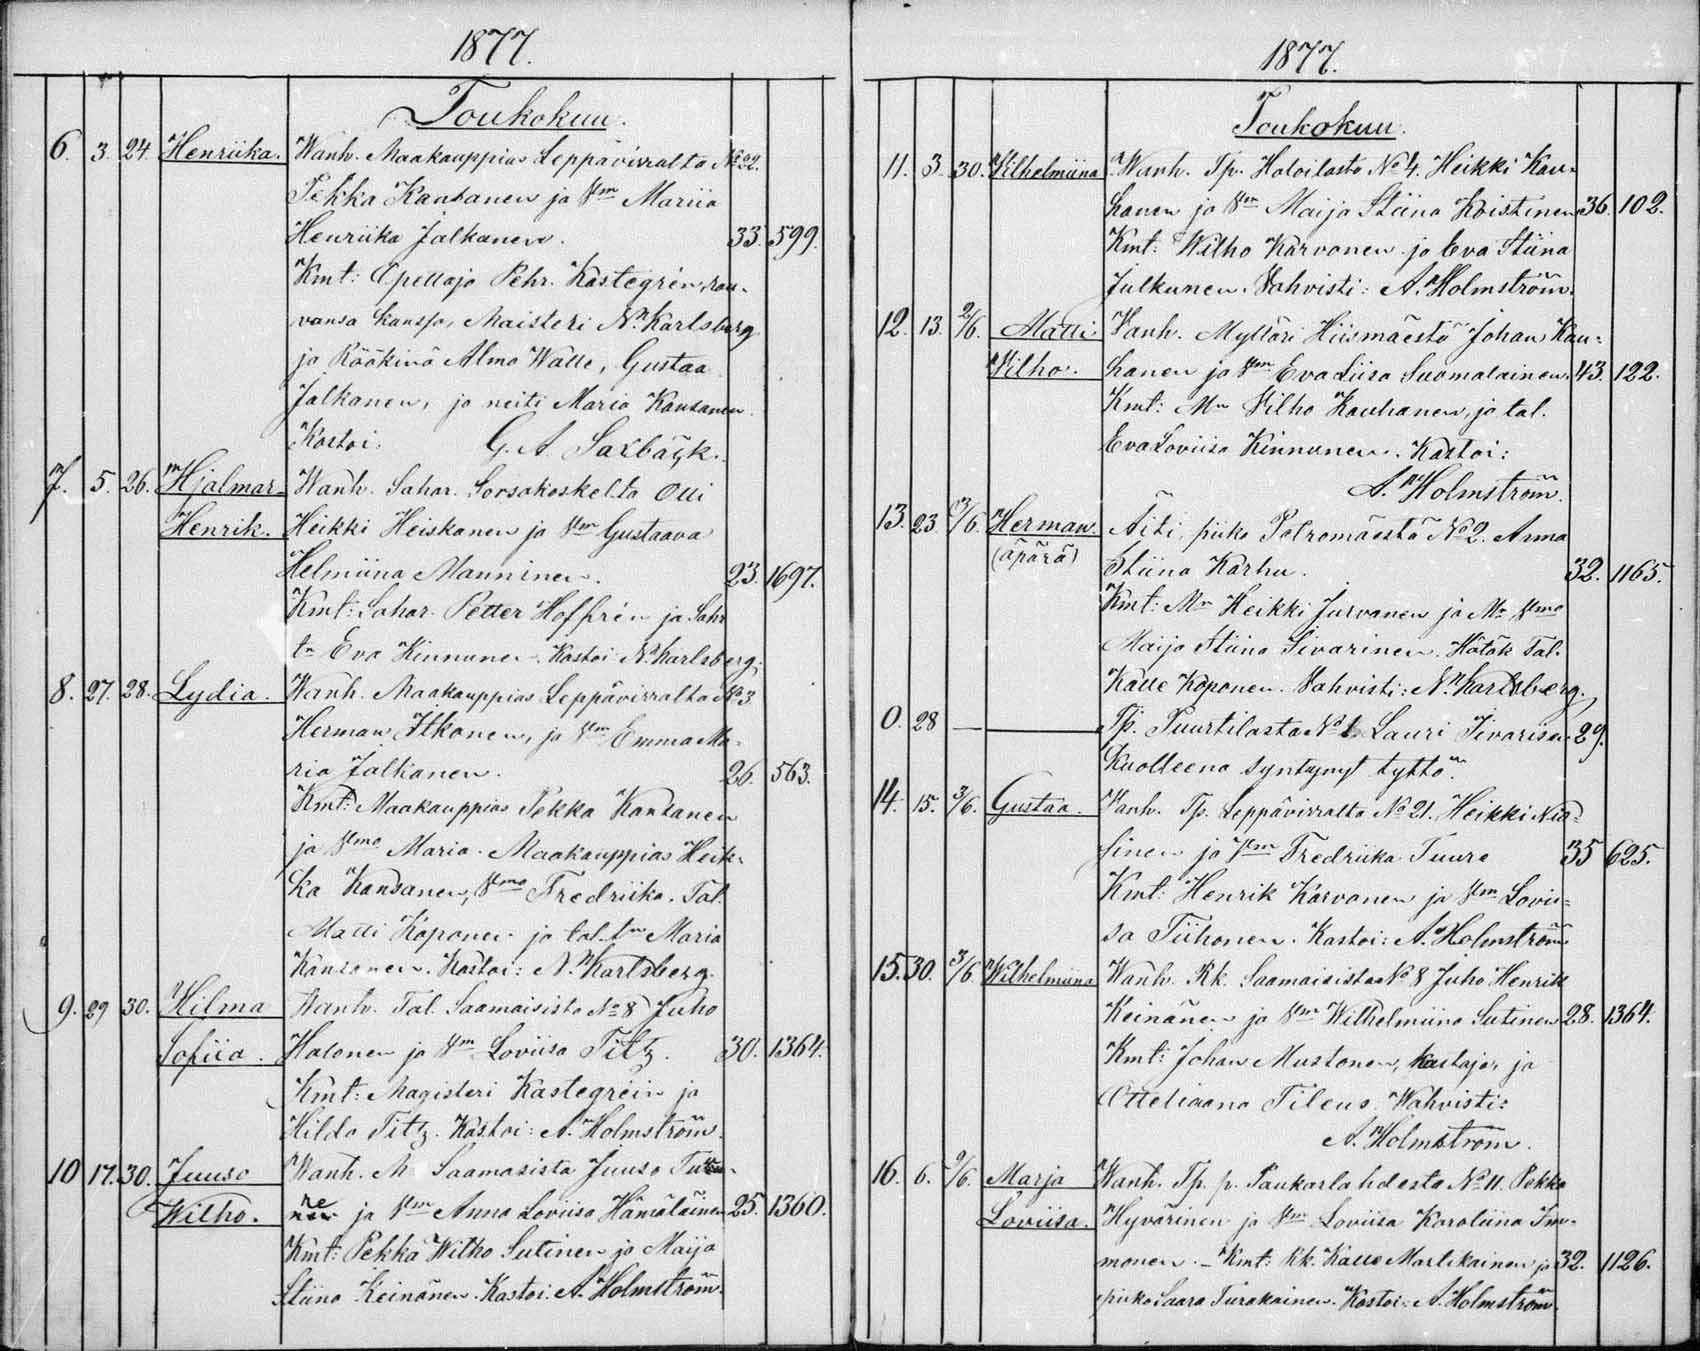 1877.
Toukokuu.
6. 3. 24. Henriika. Wanh. Maakauppias Leppävirralta No 22.
Pekka Kansanen ja Vm Mariia
Henriika Jalkanen. 33. 599.
Kmt: Opettaja Pehr. Kastegrén, rou-
vansa kanssa, Maisteri N. Karlsberg
ja Röökinä Alma Walle, Gustaa
Jalkanen, ja neiti Maria Kansanen.
Kastoi. G. A. Saxbäck.
7. 5. 26. Hjalmar Wanh. Sahar. Sorsakoskelta Olli
Henrik. Heikki Heiskanen ja Vm Gustaava
Helmiina Manninen. 23. 1697.
Kmt: Sahar. Petter Hoffrén ja Sahr
tr Eva Kinnunen. Kastoi N. Karlsberg.
8. 27. 28. Lydia. Wanh. Maakauppias Leppävirralta No 3
Herman Itkonen, ja Vm Emma Ma-
ria Jalkanen. 26. 563.
Kmt: Maakauppias Pekka Kansanen
ja Vmo Maria. Maakauppias Heik-
ka Kansanen, Vmo Fredriika. Tal.
Matti Koponen ja tal. tr Maria
Kansanen. Kastoi: N. Karlsberg.
9. 29 30. Hilma Wanh. Tal. Saamaisista No 8 Juho
Sofiia. Halonen ja Vm Loviisa Titz. 30. 1364.
Kmt: Magisteri Kastegrein ja
Hilda Titz. Kastoi: A. Holmström.
10 17. 30. Juuso Wanh. M Saamasista Juuso
Wilho. ja Vm Anna Loviisa Hämäläinen 25. 1360.
Kmt: Pekka Wilho Sutinen ja Maija
Stiina Keinänen. Kastoi: A. Holmström.
1877.
Toukokuu.
11. 3. 30. Vilhelmiina Wanh. Tp. Haloilasta No 4. Heikki Kau-
hanen ja Vm Maija Stiina Koistinen 36. 102.
Kmt: Wilho Karvonen ja Eva Stiina
Julkunen. Vahvisti: A. Holmström.
12. 13. 2/6. Matti Vanh. Mylläri Hiismäestä Johan Kau-
Vilho. hanen ja Vm Eva Liisa Suomalainen. 43. 122.
Kmt: Mr Vilho Kauhanen, ja tal.
Eva Loviisa Kinnunen. Kastoi:
A. Holmström.
13. 23 3/6. Herman. Äiti, piika Paloomäestä No 2. Anna
(äpärä) Stiina Karhu. 32. 1165.
Kmt: Mr Heikki Jurvanen ja Mr Vmo
Maija Stiina Iivarinen. Hätäk Tal.
Kalle Koponen. Vahvisti: N. Karlsberg.
0. 28 — Tp. Puurtilasta No 1. Lauri Iivarisen 29.
Kuolleena syntynyt tyttö.
14. 15. 3/6. Gustaa. Vanh. Tp. Leppävirralta No 21. Heikki Nis-
sinen ja Vm Fredriika Tuure 35 625.
Kmt: Henrik Karvonen ja Vm Lovii-
sa Tiihonen. Kastoi: A. Holmström
15. 30. 3/6 Wilhelmiina Wanh. Rk. Saamaisista No 8 Juho Henrik
Keinänen ja Vm Wilhelmiina Sutinen 28. 1364.
Kmt: Johan Mustonen, kastaja, ja
Otteliaana Tileus. Wahvisti:
A. Holmström.
16. 6. 9/6. Marja Wanh. Tp. p. Paukarlahdesta No 11. Pekka
Loviisa. Hyvärinen ja Vm Loviisa Karoliina Im-
monen. – Kmt: Rk. Kalle Martikainen ja 32. 1126.
piika Saara Turakainen. Kastoi: A. Holmström.